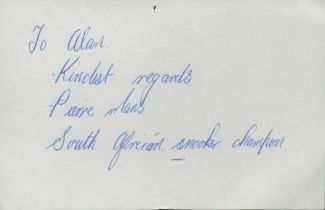 To Alan.
Kindest regards
Pierre Mans
South African snooker champion.